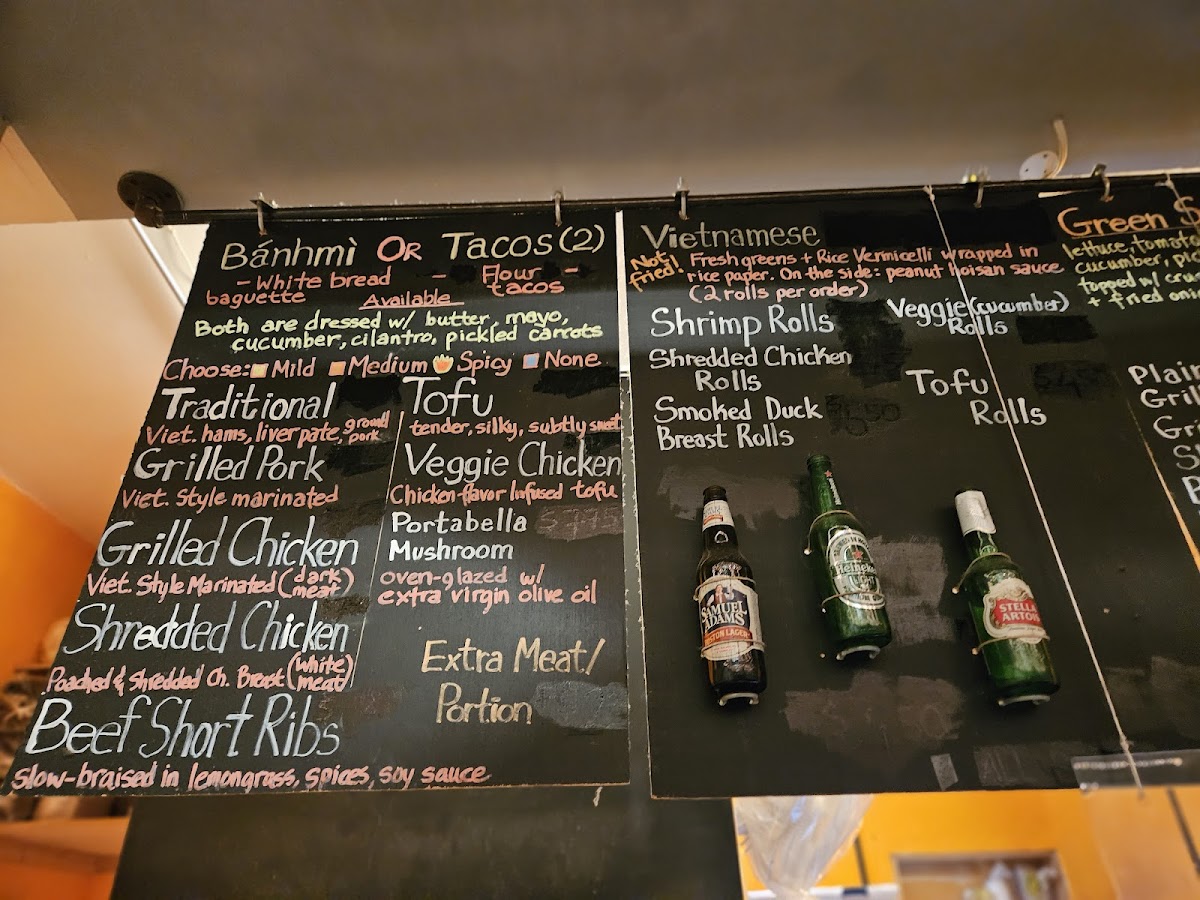 Bánhmì OR Tacos (2)
- White bread - Flour -
baguette tacos
Available
Both are dressed w/ butter, mayo,
cucumber, cilantro, pickled carrots
Choose: Mild Medium Spicy None
Traditional
Viet. hams, liver pate, ground pork
Grilled Pork
Viet. Style marinated
Grilled Chicken
Viet. Style Marinated (dark meat)
Shredded Chicken
Poached & Shredded Ch. Breast (white meat)
Beef Short Ribs
Slow-braised in lemongrass, spices, soy sauce
Tofu
tender, silky, subtly sweet
Veggie Chicken
Chicken-flavor Infused tofu
Portabella $7.75
Mushroom
oven-glazed w/
extra virgin olive oil
Extra Meat/
Portion
Vietnamese
Not fried!
Fresh greens + Rice Vermicelli wrapped in
rice paper. On the side: peanut hoisan sauce
(2 rolls per order)
Shrimp Rolls
Shredded Chicken
Rolls
Smoked Duck
Breast Rolls
Veggie (cucumber)
Rolls
Tofu
Rolls
SAMUEL
ADAMS
BOSTON LAGER
Heineken
Light
STELLA
ARTOIS
Green
lettuce, tomato
cucumber,
topped w/
+ fried
Plain